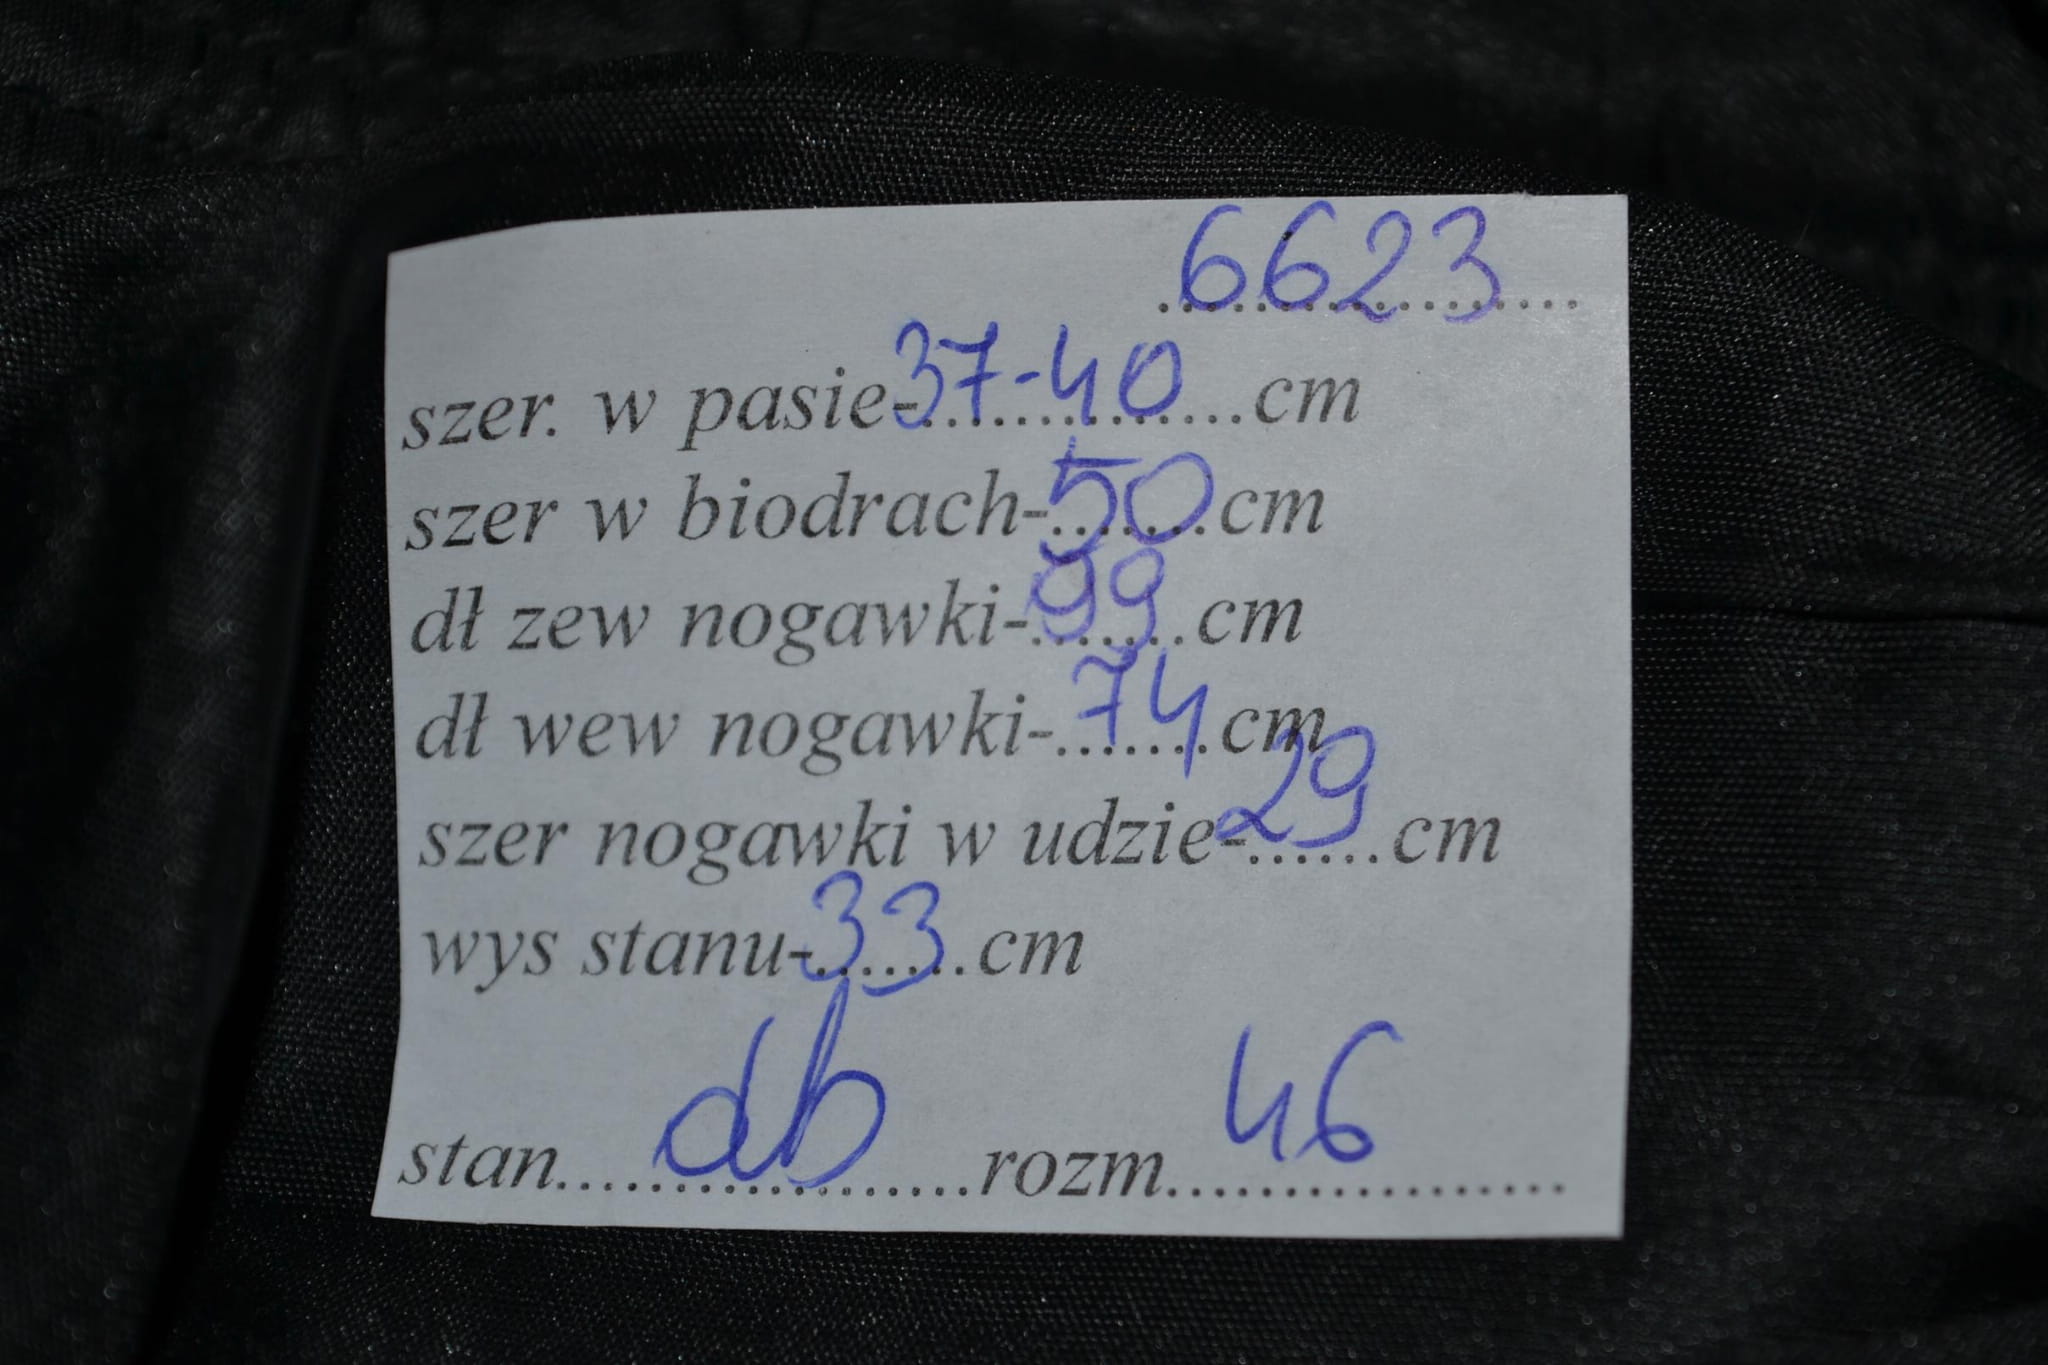 6623
szer. w pasie-37-40cm
szer w biodrach-50cm
dł zew nogawki-99cm
dł wew nogawki-74cm
szer nogawki w udzie-29cm
wys stanu-33cm
stan....db....rozm....46....